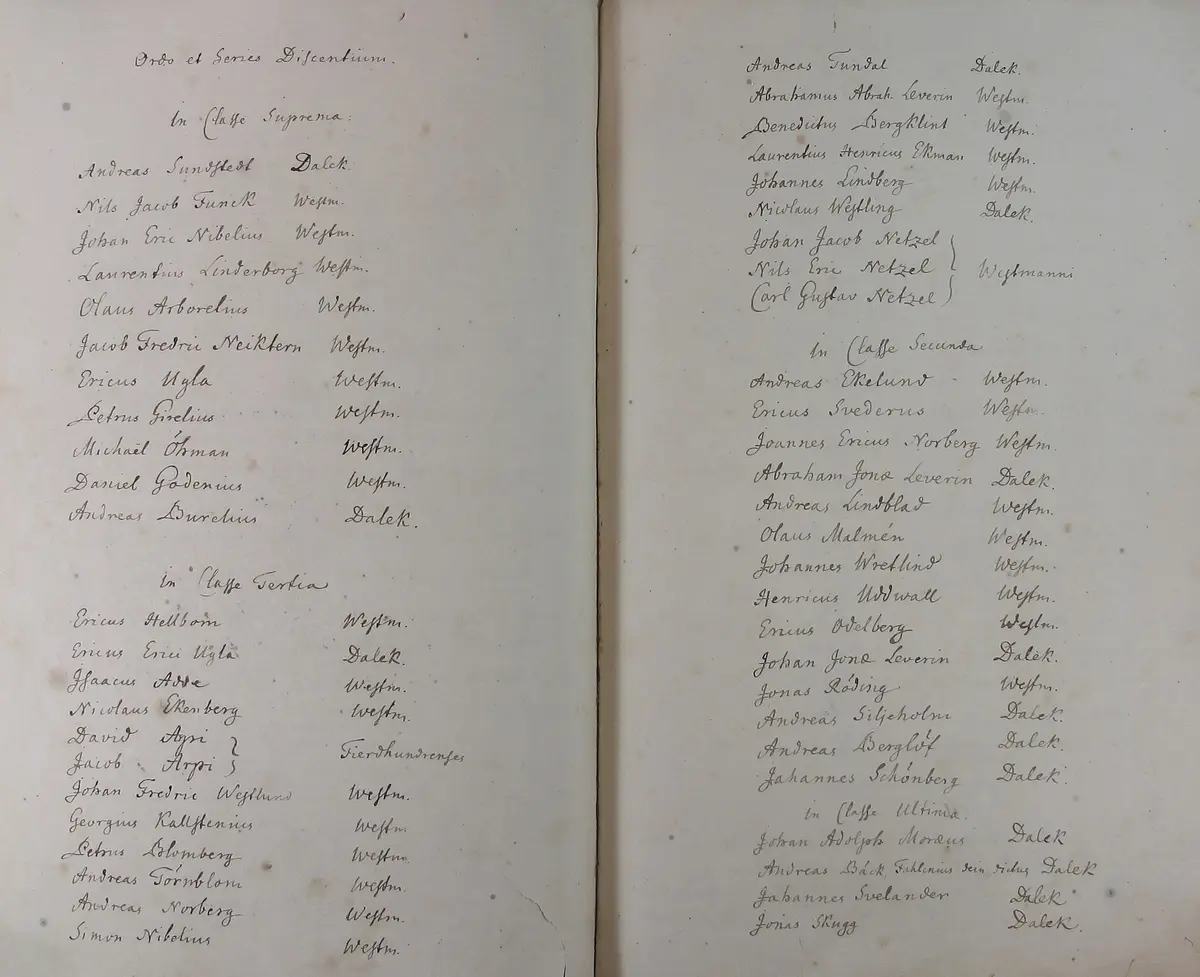 Ordo et Series Discentium.
In Classe Suprema:
Andreas Sundstedt Dalek.
Nils Jacob Funck Westm.
Johan Eric Nibelius Westm.
Laurentius Linderborg Westm.
Olaus Arborelius Westm.
Jacob Fredric Neiktern Westm.
Ericus Ugla Westm.
Petrus Girelius Westm.
Michaël Öhman Westm.
Daniel Godenius Westm.
Andreas Burelius Dalek.
In Classe Tertia
Ericus Hellbom Westm.
Ericus Erici Ugla Dalek.
Isaacus Adde Westm.
Nicolaus Ekenberg Westm.
David Arpi
Jacob Arpi } Fierdhundrenses
Johan Fredric Westlund Westm.
Georgius Kallstenius Westm.
Petrus Blomberg Westm.
Andreas Törnblom Westm.
Andreas Norberg Westm.
Simon Nibelius Westm.
Andreas Tundal Dalek.
Abrahamus Abrah. Leverin Westm.
Benedictus Bergklint Westm.
Laurentius Henricus Ekman Westm.
Johannes Lindberg Westm.
Nicolaus Westling Dalek.
Johan Jacob Netzel
Nils Eric Netzel } Westmanni
Carl Gustav Netzel
In Classe Secunda
Andreas Ekelund - Westm.
Ericus Svederus Westm.
Joannes Ericus Norberg Westm.
Abraham Jonæ Leverin Dalek.
Andreas Lindblad Westm.
Olaus Malmén Westm.
Johannes Wretlind Westm.
Henricus Uddwall Westm.
Ericus Odelberg Westm.
Johan Jonæ Leverin Dalek.
Jonas Röding Westm.
Andreas Siljeholm Dalek.
Andreas Berglöf Dalek.
Jahannes Schönberg Dalek.
in Classe Ultima.
Johan Adolph Moræus Dalek
Andreas Bäck, Fahlinius dein dictus Dalek
Jahannes Svelander Dalek
Jonas Skugg Dalek.